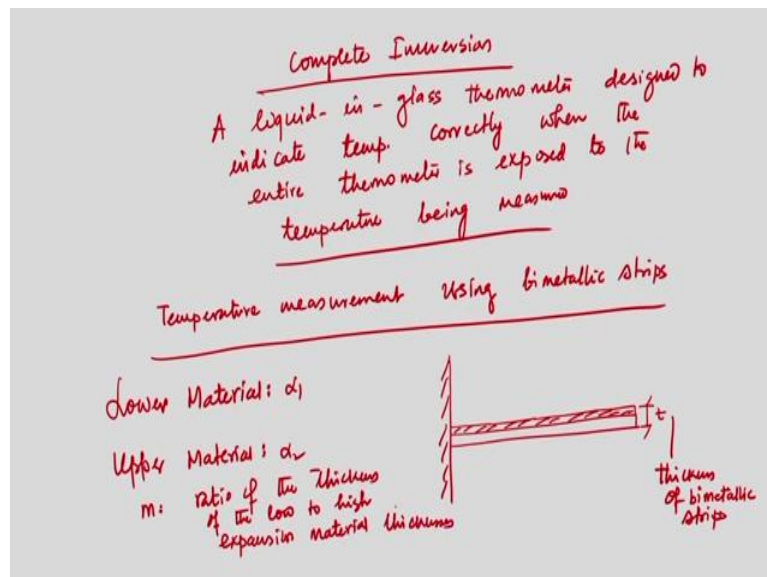 Complete Immersion
A liquid-in-glass thermometer designed to
indicate temp. correctly when the
entire thermometer is exposed to the
temperature being measured
Temperature measurement using bimetallic strips
Lower Material: α₁
Upper Material: α₂
m: ratio of the thickness
of the low to high
expansion material thickness
t
thickness
of bimetallic
strips